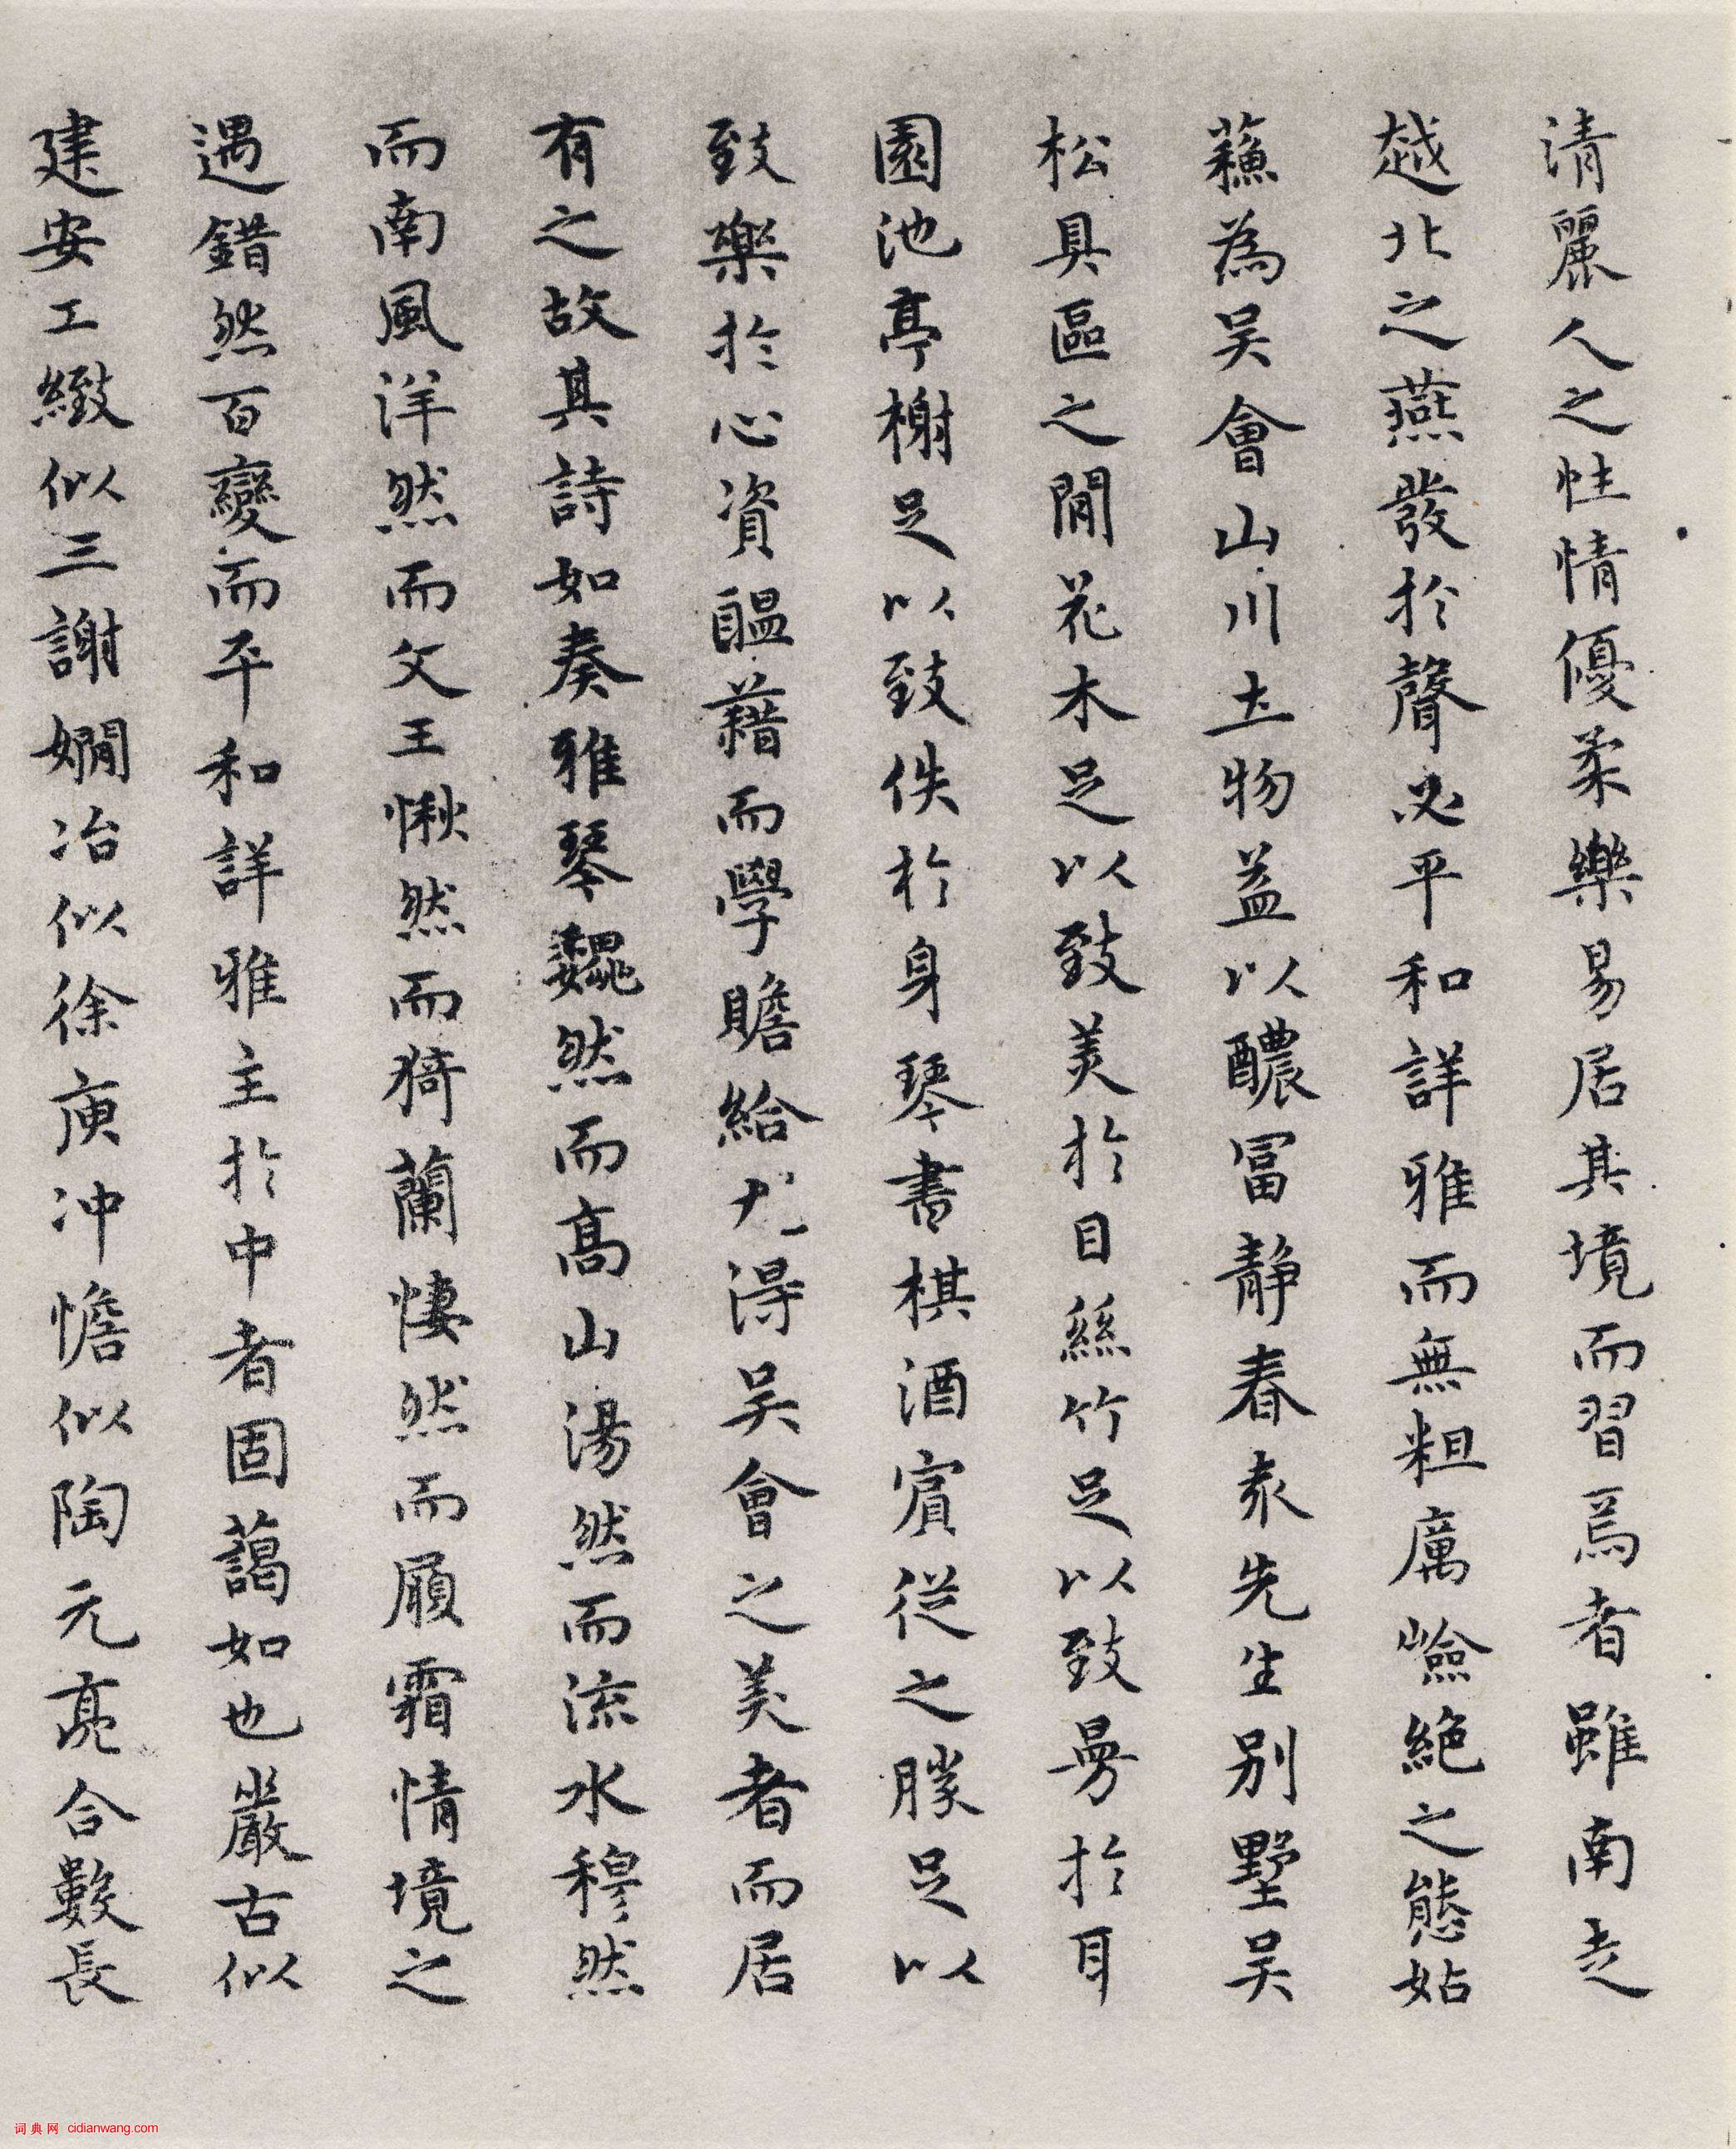 清麗人之性情優柔樂易居其境而習焉者雖南走
越北之燕發於聲必平和詳雅而無粗厲嶮絶之態姑
蘓為吴會山川土物益以醲冨静春袁先生别墅吴
松具區之間花木足以致美於目絲竹足以致曼於耳
園池亭榭足以致佚於身琴書棋酒賔從之勝足以
致樂於心資醖藉而學贍給尤得吴會之美者而居
有之故其詩如奏雅琴巍然而髙山湯然而流水穆然
而南風洋然而文王愀然而猗蘭悽然而履霜情境之
遇錯然百變而平和詳雅主於中者固藹如也嚴古似
建安工緻似三謝嫺冶似徐庾冲憺似陶元亮合數長
词典网 cidianwang.com